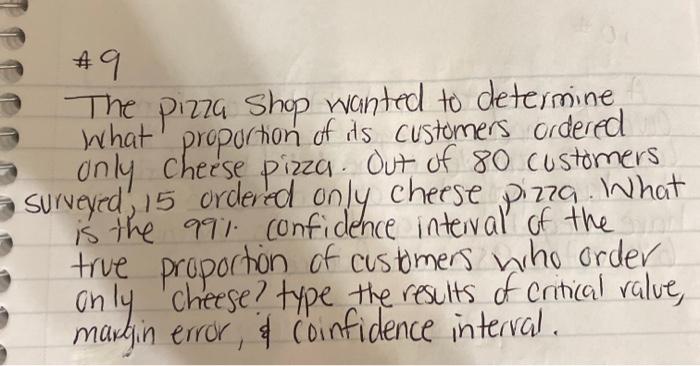 #9
The pizza Shop wanted to determine
what proportion of its customers ordered
only cheese pizza. Out of 80 customers
surveyed, 15 ordered only cheese pizza. What
is the 99%. confidence interval of the
true proportion of customers who order
only cheese? type the results of critical value,
margin error, & coinfidence interval.